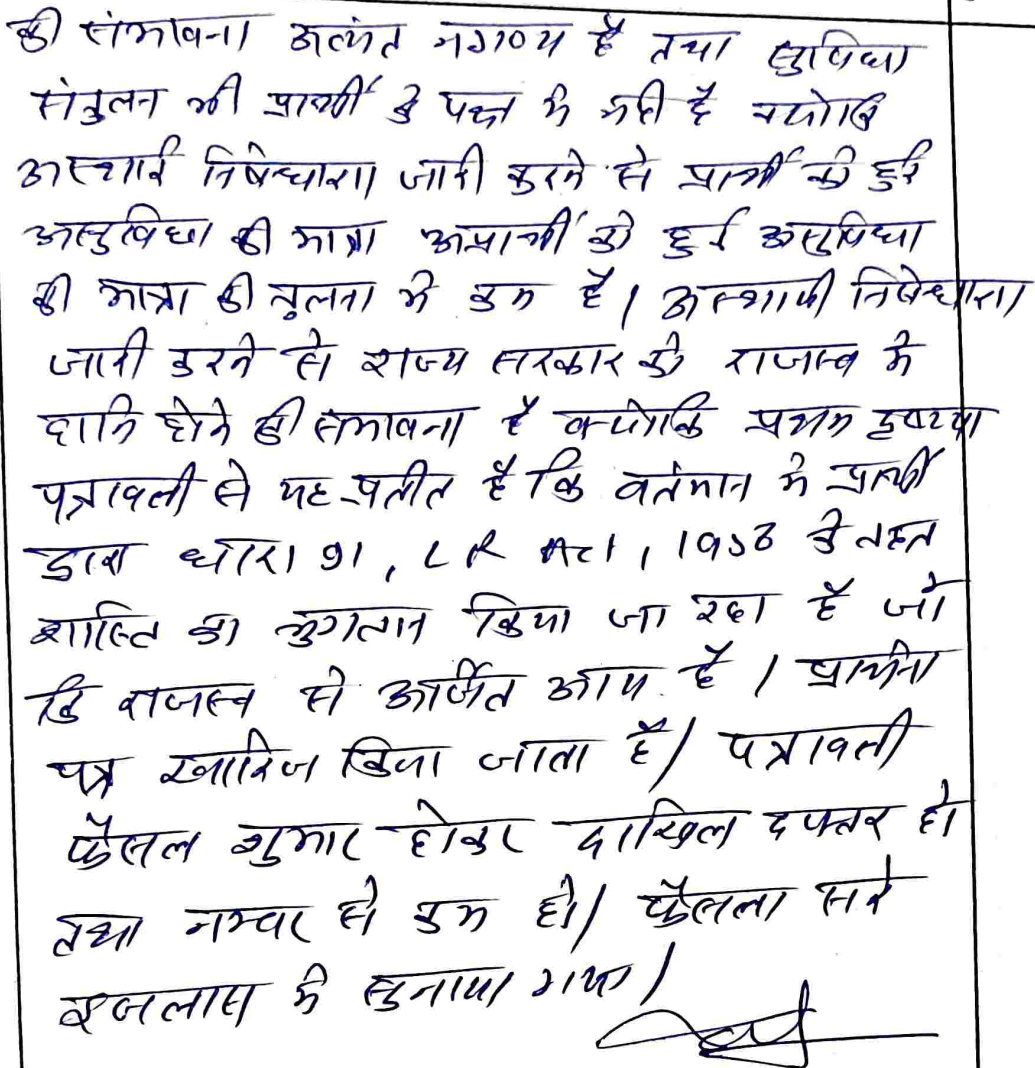 की संभावना अत्यंत नगण्य है तथा सुविधा
संतुलन भी प्रार्थी के पक्ष में नही है क्योकि
अस्थाई निषेधाज्ञा जारी करने से प्रार्थी को हुई
असुविधा की मात्रा अप्रार्थी को हुई असुविधा
की मात्रा की तुलना में कम है। अस्थायी निषेधाज्ञा
जारी करने से राज्य सरकार को राजस्व में
हानि होने की संभावना है क्योकि प्रथम दृष्टया
पत्रावली से यह प्रतीत है कि वर्तमान में प्रार्थी
द्वारा धारा 91, LR Act, 1956 के तहत
शास्ति का भुगतान किया जा रहा है जो
कि राजस्व से अर्जित आय है। प्रार्थना
पत्र खारिज किया जाता है। पत्रावली
फैसल शुमार होकर दाखिल दफ्तर हो
तथा नम्बर से कम हो। फैसला सरे
इजलास में सुनाया गया।